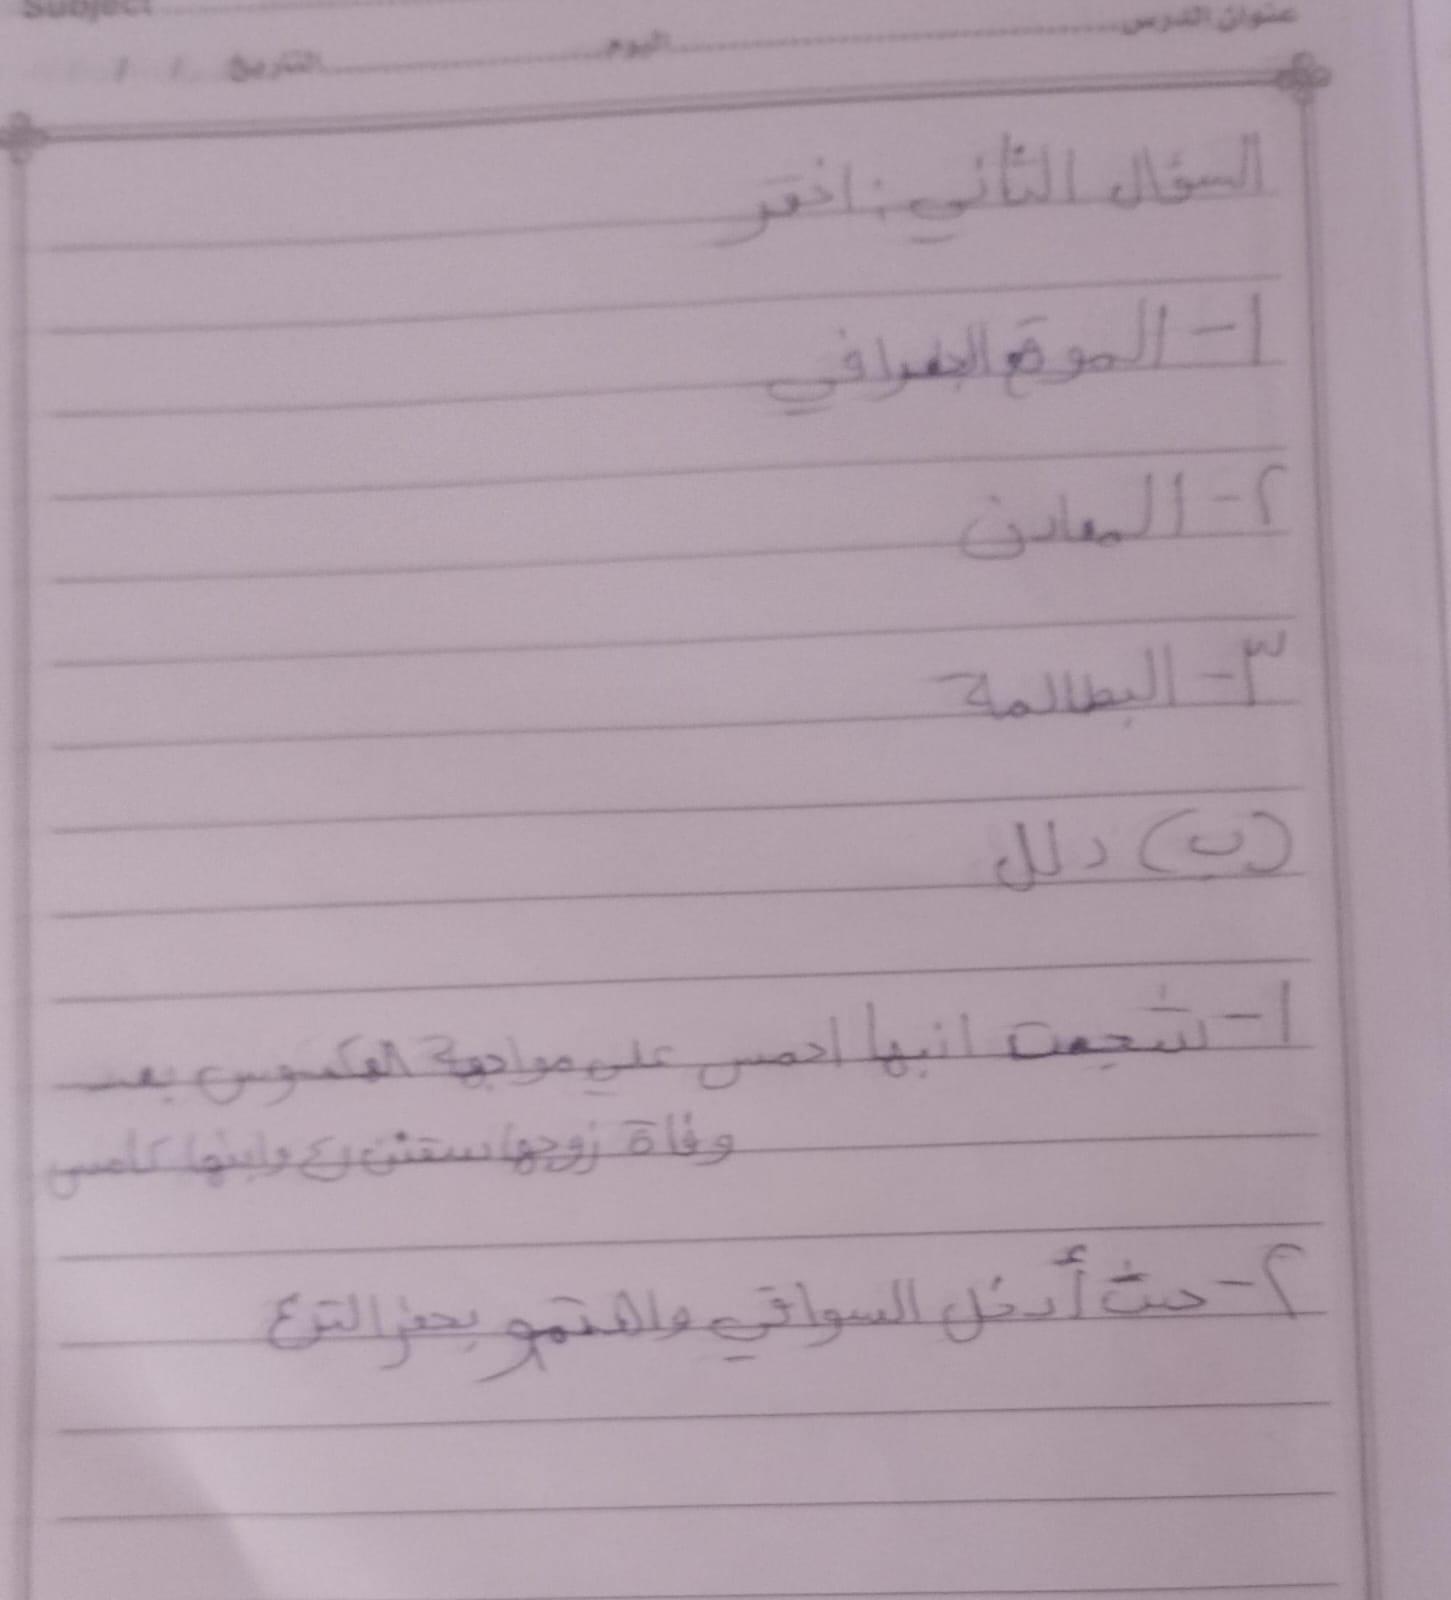 Subject
عنوان الدرس اليوم التاريخ / /
السؤال الثاني : اختر
١- الموقع الجغرافي
٢- المعادن
٣- البطالمة
(ب) دلل
١- شجعت ابنها احمس علي مواجهة الهكسوس بعد
وفاة زوجها سقنن رع وابنها كامس
٢- حيث أدخل السواقي واهتمو بحفر الترع